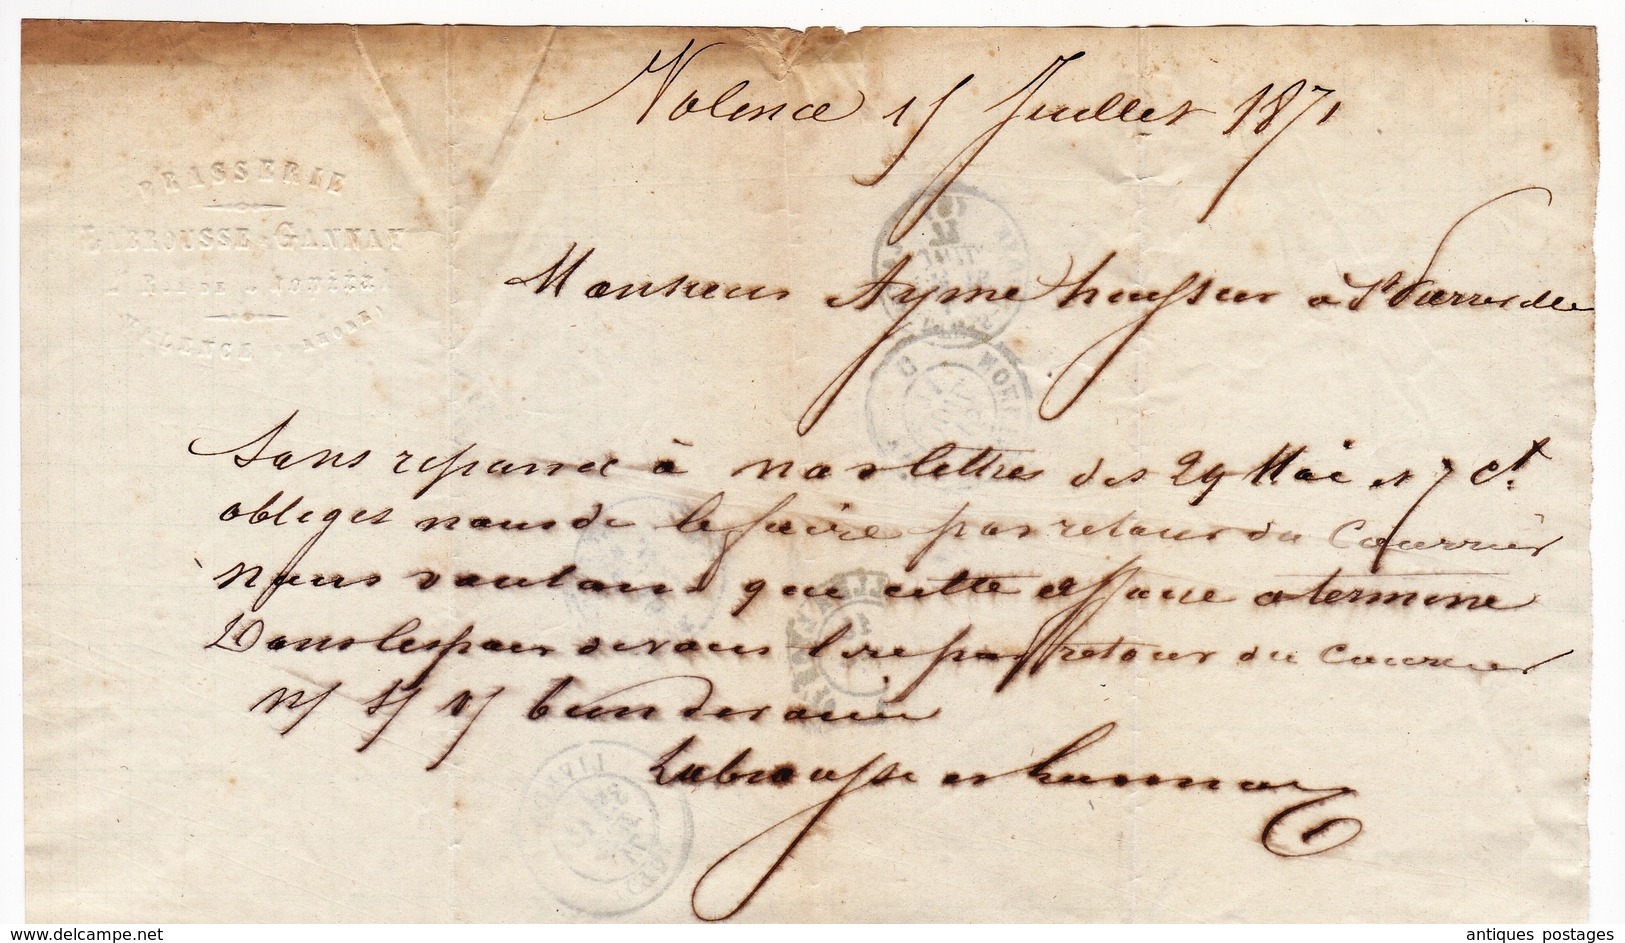 Valence 15 Juillet 1871
BRASSERIE
LABROUSSE & GANNAY
VALENCE (DROME)
Monsieur Ayme huissier à St Pierreville
Sans reponse à nos lettres des 29 Mai et 7 Ct
obliges nous de le faire par retour du Courrier
Nous voulons que cette affaire a termine
Dans lespoir de vous lire par retour du Courrier
N/ S/ V/ bien devoues
Labrousse et Gannay
LIVRON
antiques postages
www.delcampe.net